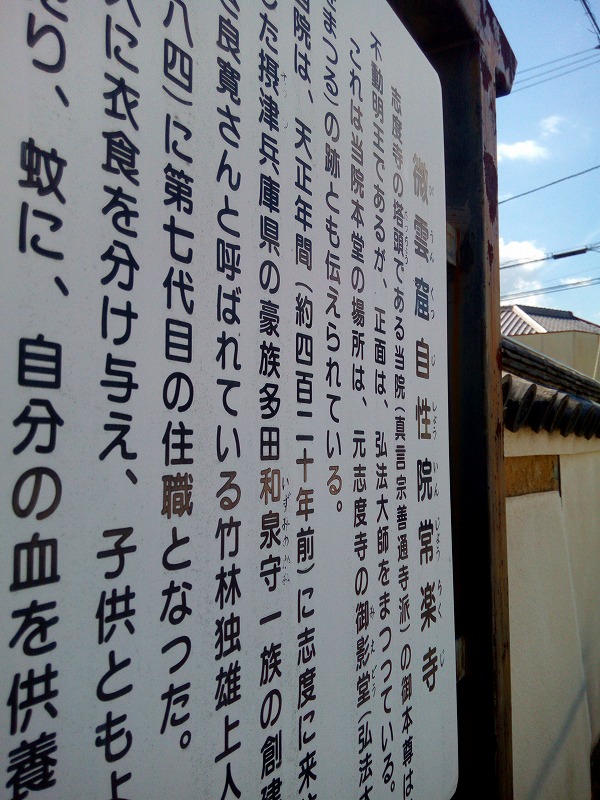 微雲窟自性院常楽寺
志度寺の塔頭である当院(真言宗善通寺派)の御本尊は
不動明王であるが、正面は、弘法大師をまつっている。
これは当院本堂の場所は、元志度寺の御影堂(弘法大
まつる)の跡とも伝えられている。
当院は、天正年間(約四百二十年前)に志度に来
した摂津兵庫県の豪族多田和泉守一族の創建
良寛さんと呼ばれている竹林独雄上人
八四)に第七代目の住職となった。
人に衣食を分け与え、子供ともよ
たり、蚊に、自分の血を供養